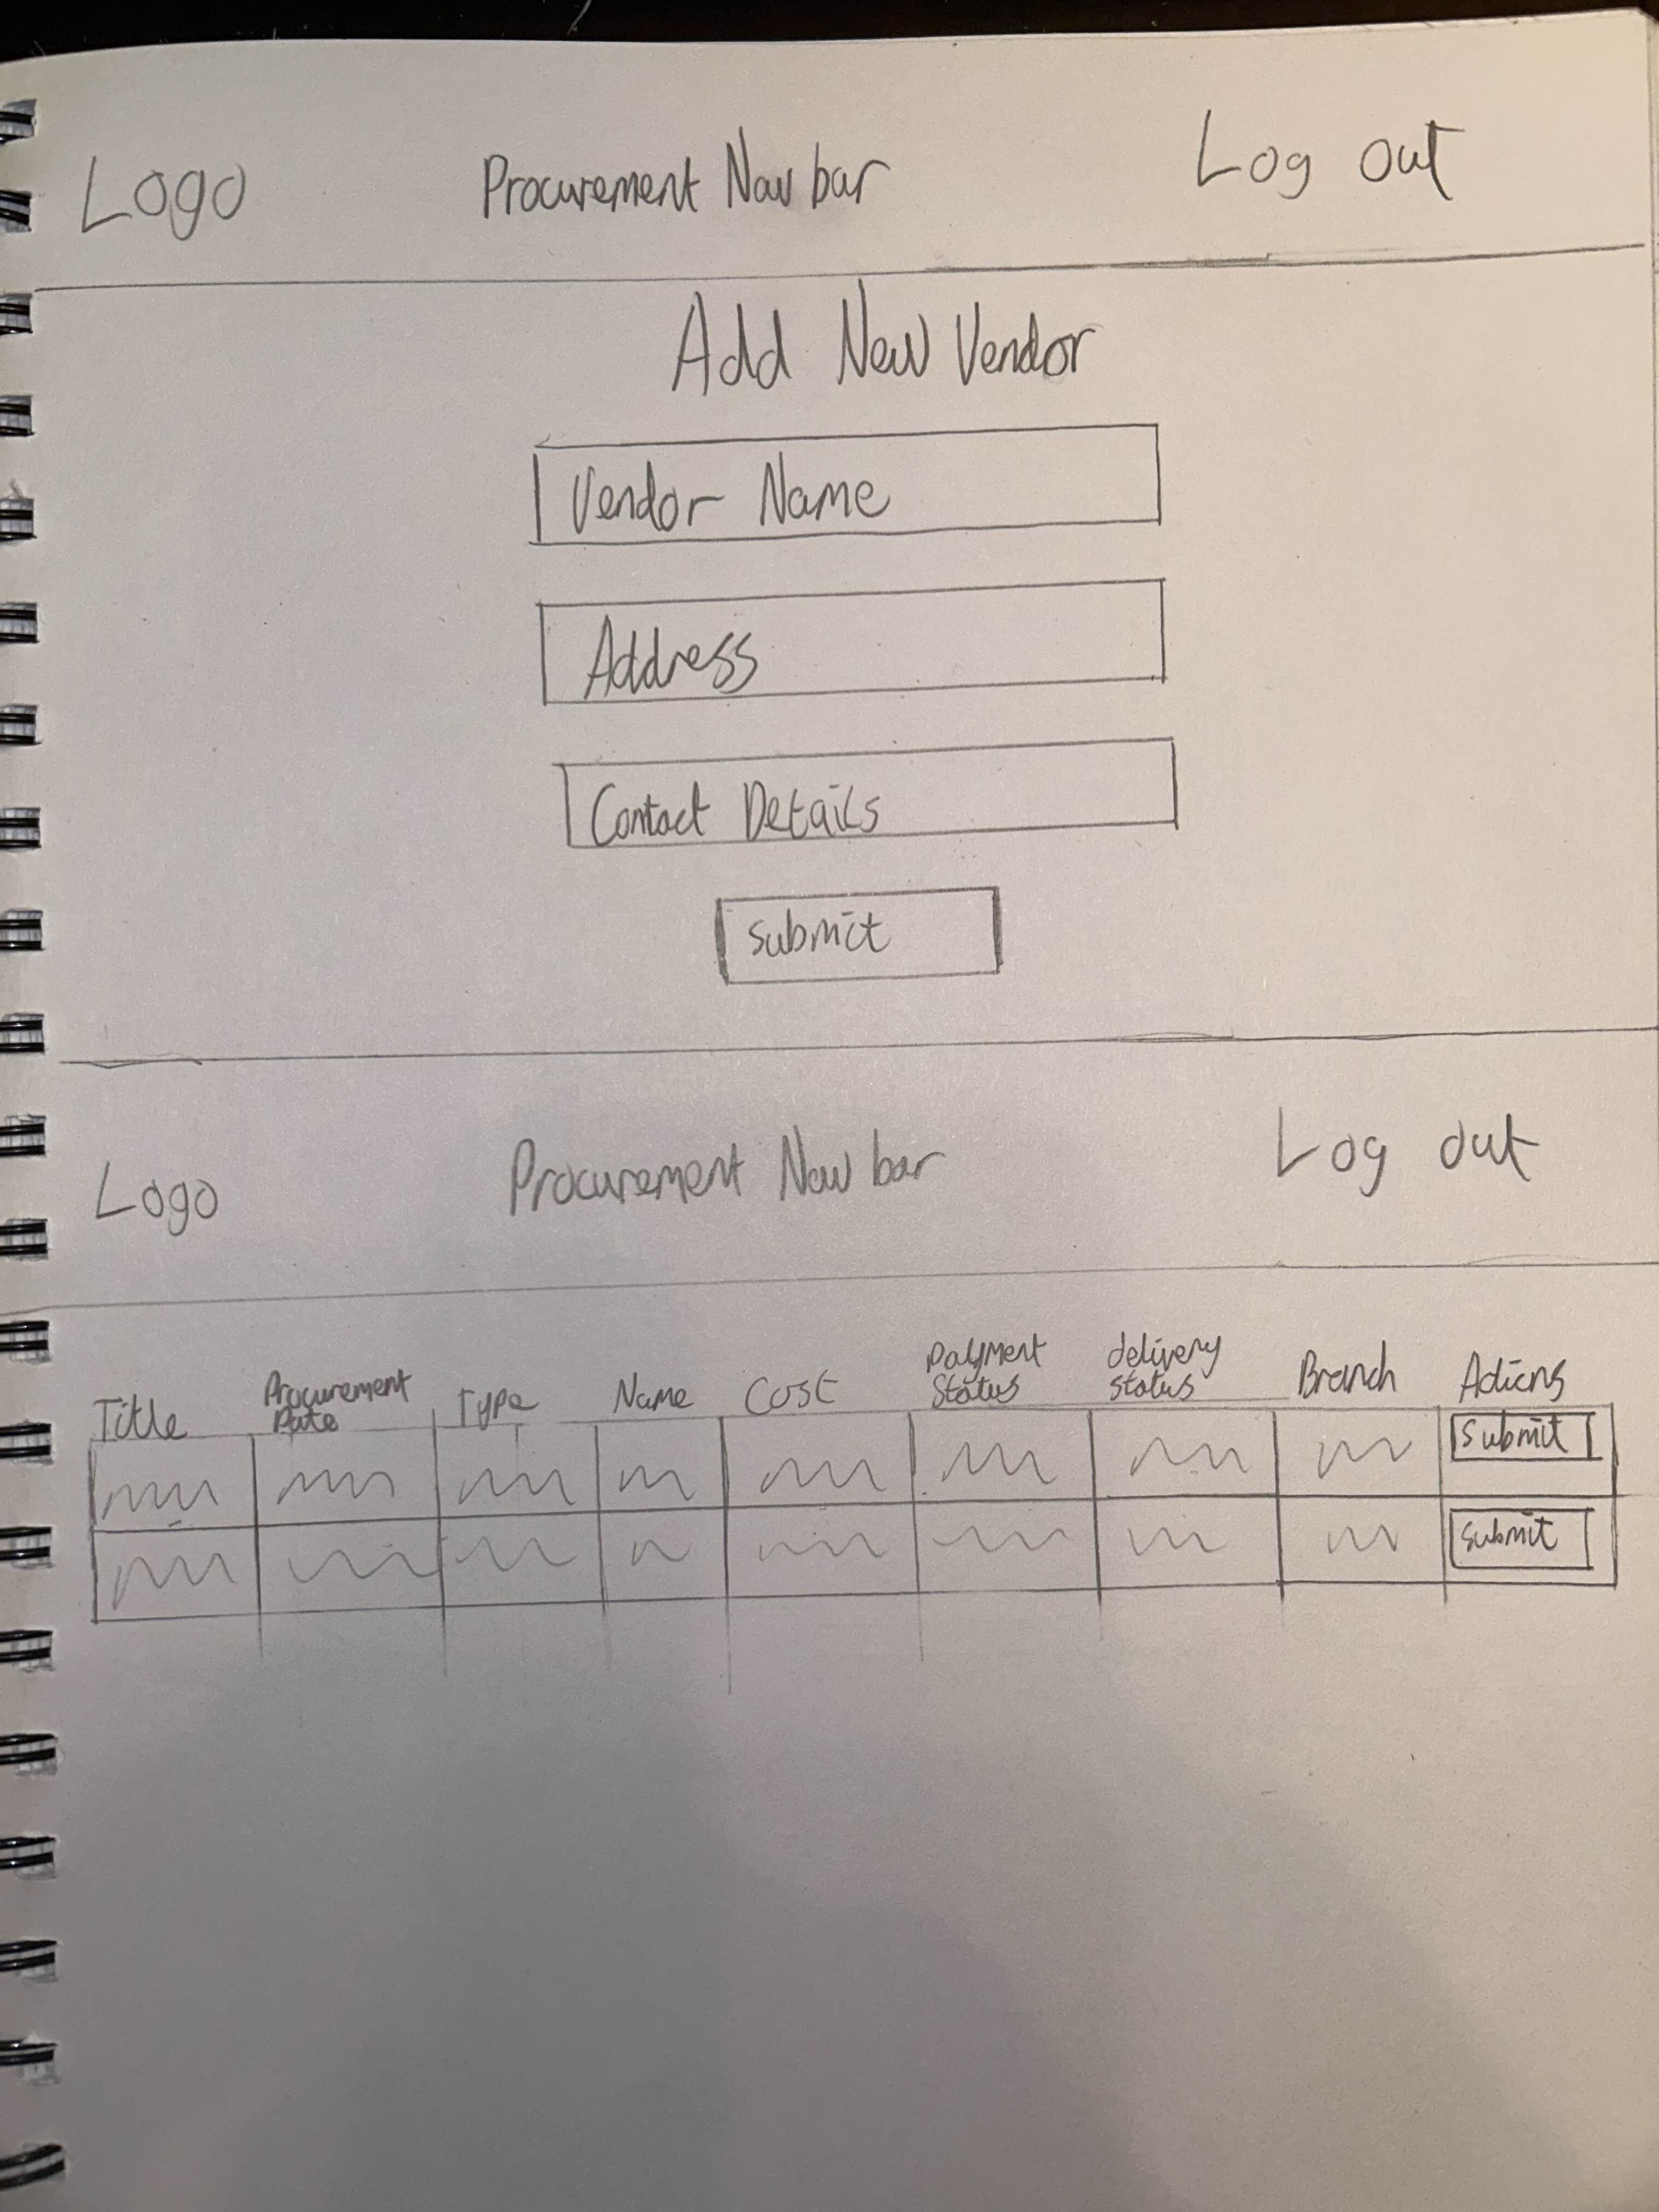 Logo Procurement Nav bar Log out
Add New Vendor
Vendor Name
Address
Contact Details
submit
Logo Procurement Nav bar Log out
Title Procurement Date Type Name Cost Payment Status delivery status Branch Actions
submit
submit